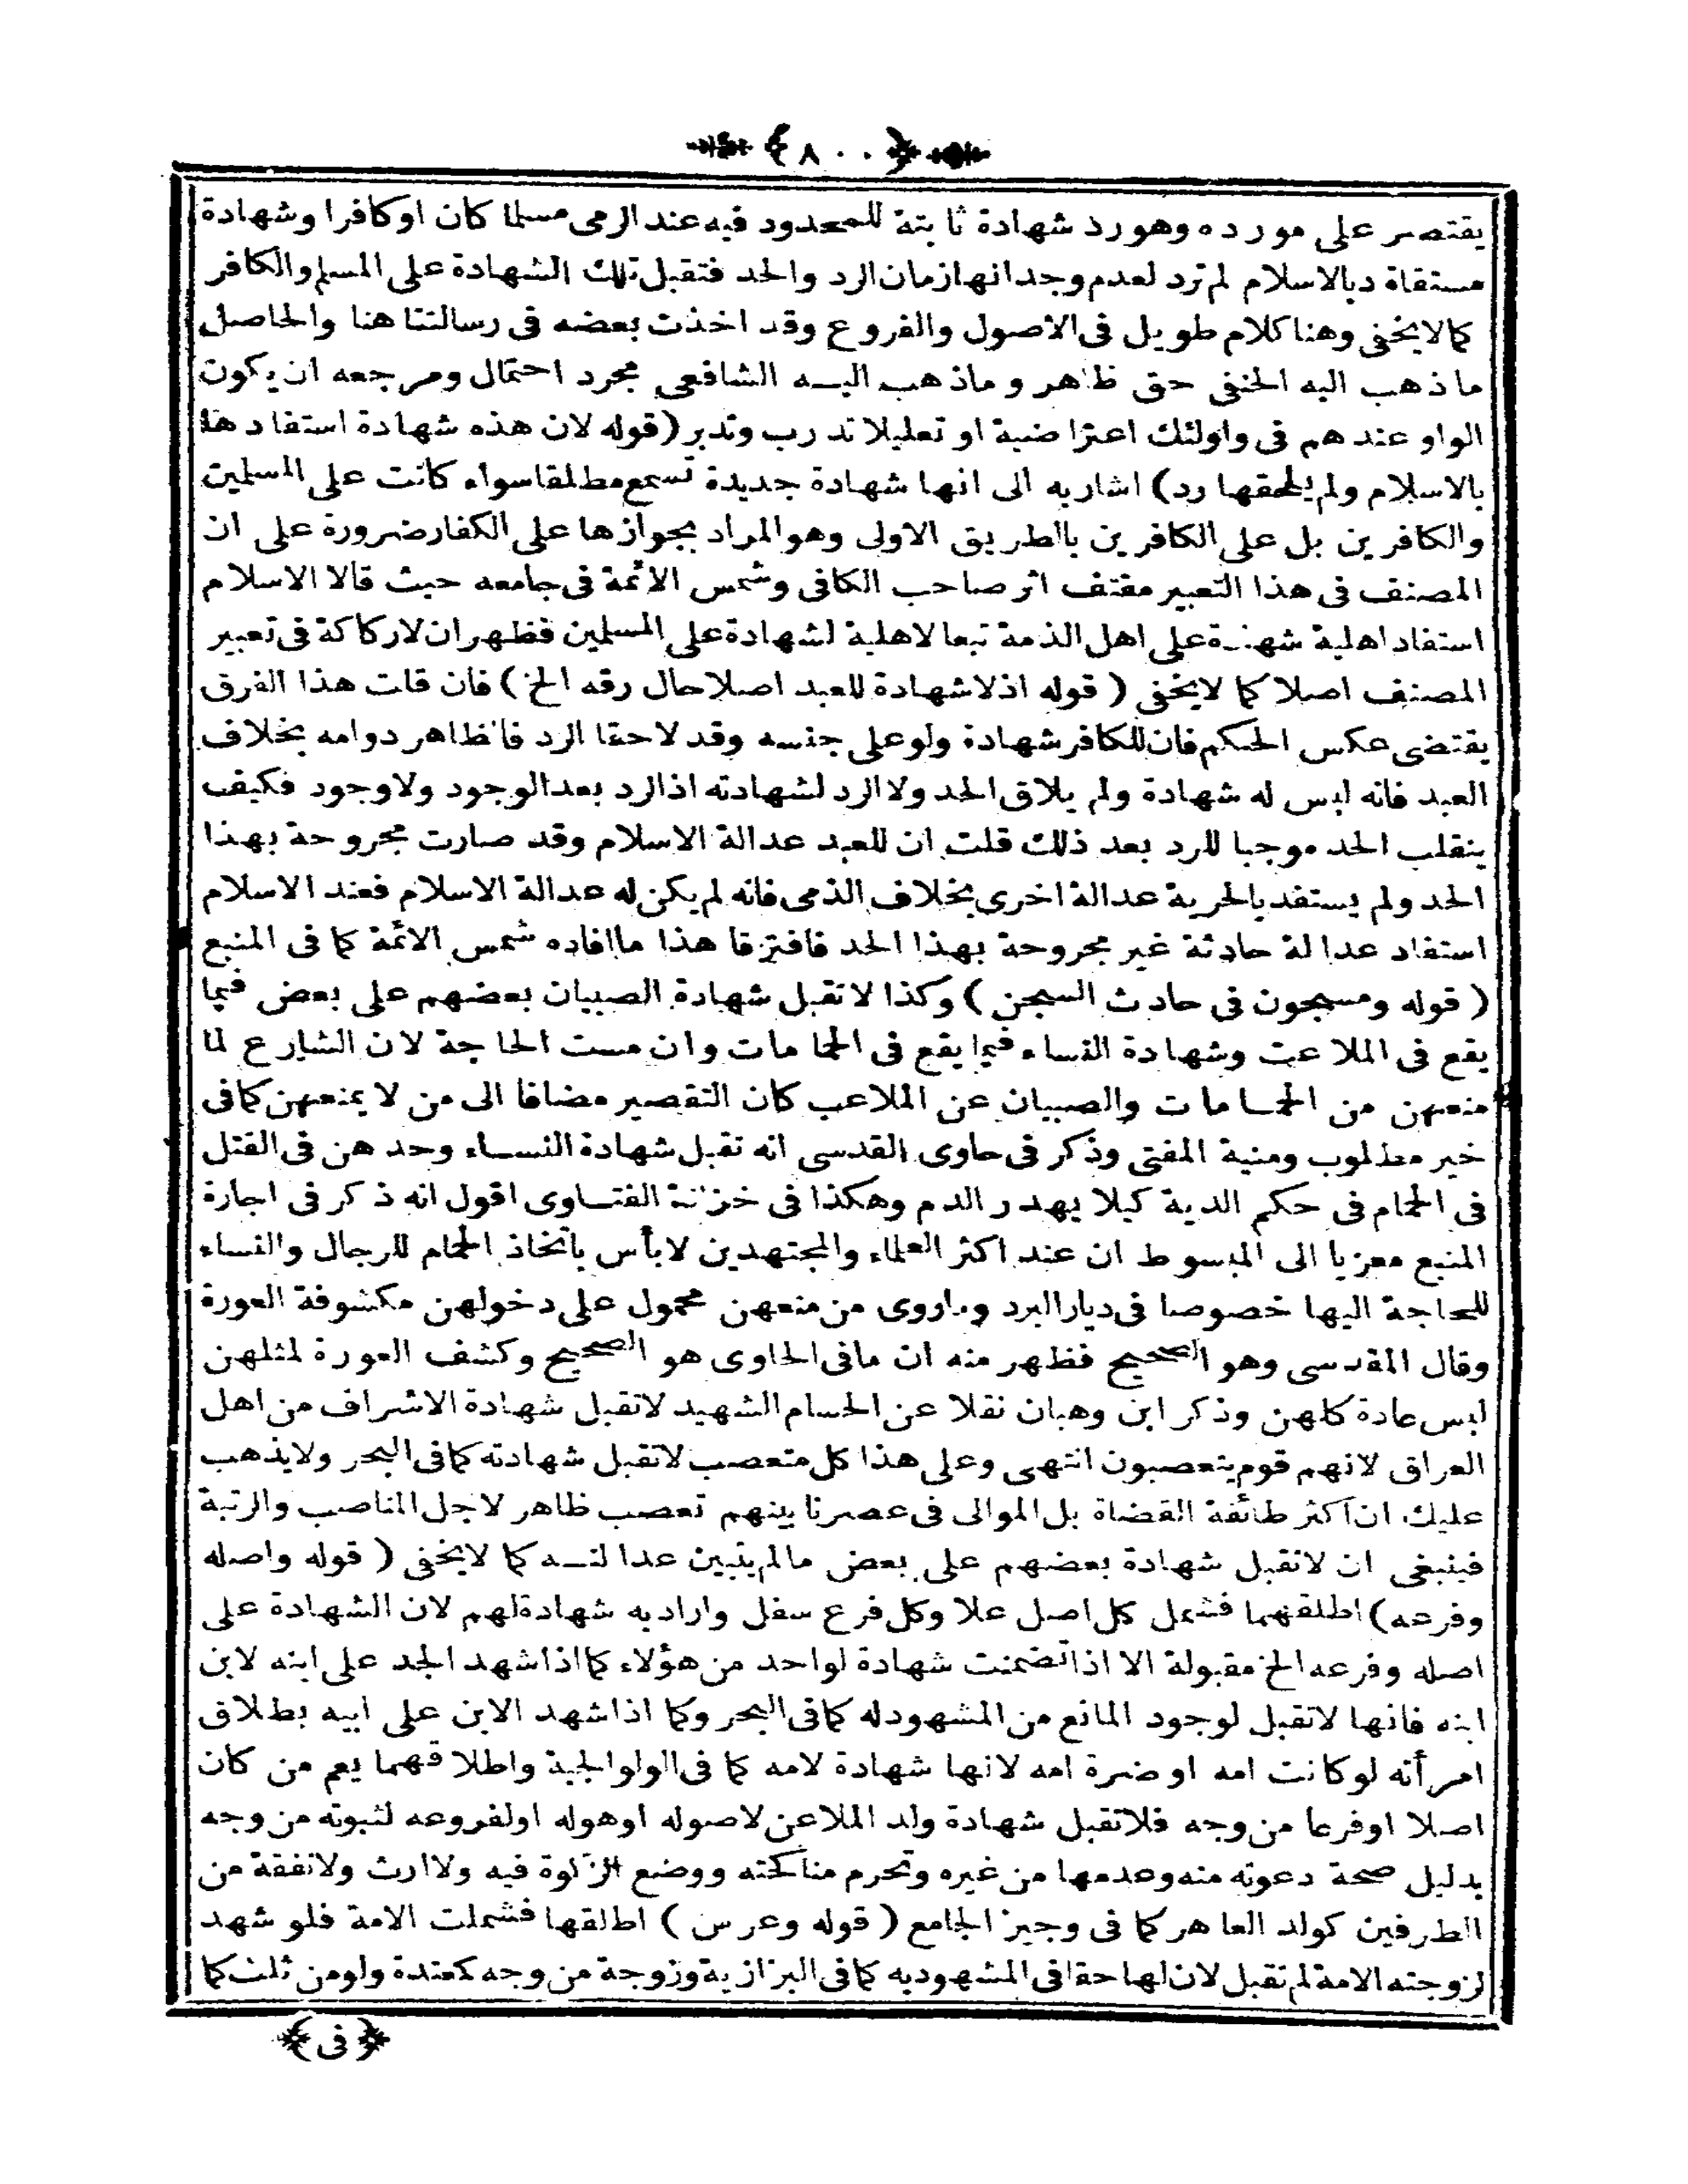 ﴿٨٠٠﴾
يقتصر على مورده وهورد شهادة ثابتة للمحدود فيه عند الرمى مسلما كان اوكافرا وشهادة
مستفاة دبالاسلام لم ترد لعدم وجدانهازمان الرد والحد فتقبل تلك الشهادة على المسلم والكافر
كمالا يخفى وهنا كلام طويل فى الاصول والفروع وقد اخذت بعضه فى رسالتنا هنا والحاصل
ما ذهب اليه الحنفى حق ظاهر و ماذهب اليه الشافعى مجرد احتمال ومرجعه ان يكون
الواو عندهم فى واولئك اعتراضية او تعليلا تدرب وتدبر (قوله لان هذه شهادة استفادها
بالاسلام ولم يلحقها رد) اشاربه الى انها شهادة جديدة تسمع مطلقا سواء كانت على المسلمين
والكافرين بل على الكافرين بالطريق الاولى وهوالمراد بجوازها على الكفارضرورة على ان
المصنف فى هذا التعبير مقتف اثر صاحب الكافى وشمس الائمة فى جامعه حيث قالا الاسلام
استفاد اهلية شهادة على اهل الذمة تبعا لاهلية لشهادة على المسلمين فظهر ان لاركاكة فى تعبير
المصنف اصلا كما لايخفى ( قوله اذلاشهادة للعبد اصلاحال رقه الخ ) فان قلت هذا الفرق
يقتضى عكس الحكم فان للكافر شهادة ولوعلى جنسه وقد لاحقا الرد فالظاهر دوامه بخلاف
العبد فانه ليس له شهادة ولم يلاق الحد ولا الرد لشهادته اذالرد بعدالوجود ولاوجود فكيف
ينقلب الحد موجبا للرد بعد ذلك قلت ان للعبد عدالة الاسلام وقد صارت مجروحة بهذا
الحد ولم يستفد بالحرية عدالة اخرى بخلاف الذمى فانه لم يكن له عدالة الاسلام فعند الاسلام
استفاد عدالة حادثة غير مجروحة بهذا الحد فافترقا هذا ماافاده شمس الائمة كما فى المنبع
( قوله ومسجون فى حادث السجن ) وكذا لا تقبل شهادة الصبيان بعضهم على بعض فيما
يقع فى الملاعب وشهادة النساء فيما يقع فى الحمامات وان مست الحاجة لان الشارع لما
منعهن من الحمامات والصبيان عن الملاعب كان التقصير مضافا الى من لا يمنعهن كمافى
خير مطلوب ومنية المفتى وذكر فى حاوى القدسى انه تقبل شهادة النساء وحدهن فى القتل
فى الحمام فى حكم الدية كيلا يهدر الدم وهكذا فى خزانة الفتاوى اقول انه ذكر فى اجارة
المنبع معزيا الى المبسوط ان عند اكثر العلماء والمجتهدين لابأس باتخاذ الحمام للرجال والنساء
للحاجة اليها خصوصا فى ديارالبرد وماروى من منعهن محمول على دخولهن مكشوفة العورة
وقال المقدسى وهو الصحيح فظهر منه ان مافى الحاوى هو الصحيح وكشف العورة لمثلهن
ليس عادة كلهن وذكر ابن وهبان نقلا عن الحسام الشهيد لاتقبل شهادة الاشراف من اهل
العراق لانهم قوم يتعصبون انتهى وعلى هذا كل متعصب لاتقبل شهادته كمافى البحر ولايذهب
عليك ان اكثر طائفة القضاة بل الموالى فى عصرنا بينهم تعصب ظاهر لاجل المناصب والرتبة
فينبغى ان لاتقبل شهادة بعضهم على بعض مالم يتبين عدالته كما لايخفى ( قوله واصله
وفرعه) اطلقهما فشمل كل اصل علا وكل فرع سفل وارادبه شهادةلهم لان الشهادة على
اصله وفرعه الخ مقبولة الا اذاتضمنت شهادة لواحد من هؤلاء كمااذاشهد الجد على ابنه لابن
ابنه فانها لاتقبل لوجود المانع من المشهودله كمافى البحر وكما اذاشهد الابن على ابيه بطلاق
امرأته لوكانت امه او ضرة امه لانها شهادة لامه كما فى الولوالجية واطلاقهما يعم من كان
اصلا اوفرعا من وجه فلاتقبل شهادة ولد الملاعن لاصوله اوهوله اولفروعه لثبوته من وجه
بدليل صحة دعوته منه وعدمها من غيره وتحرم مناكحته ووضع الزكوة فيه ولاارث ولانفقة من
الطرفين كولد العاهر كما فى وجيز الجامع ( قوله وعرس ) اطلقها فشملت الامة فلو شهد
لزوجته الامة لم تقبل لان لها حقا فى المشهودبه كمافى البزازية وزوجة من وجه كمعتدة ولومن ثلث كما
﴿فى﴾